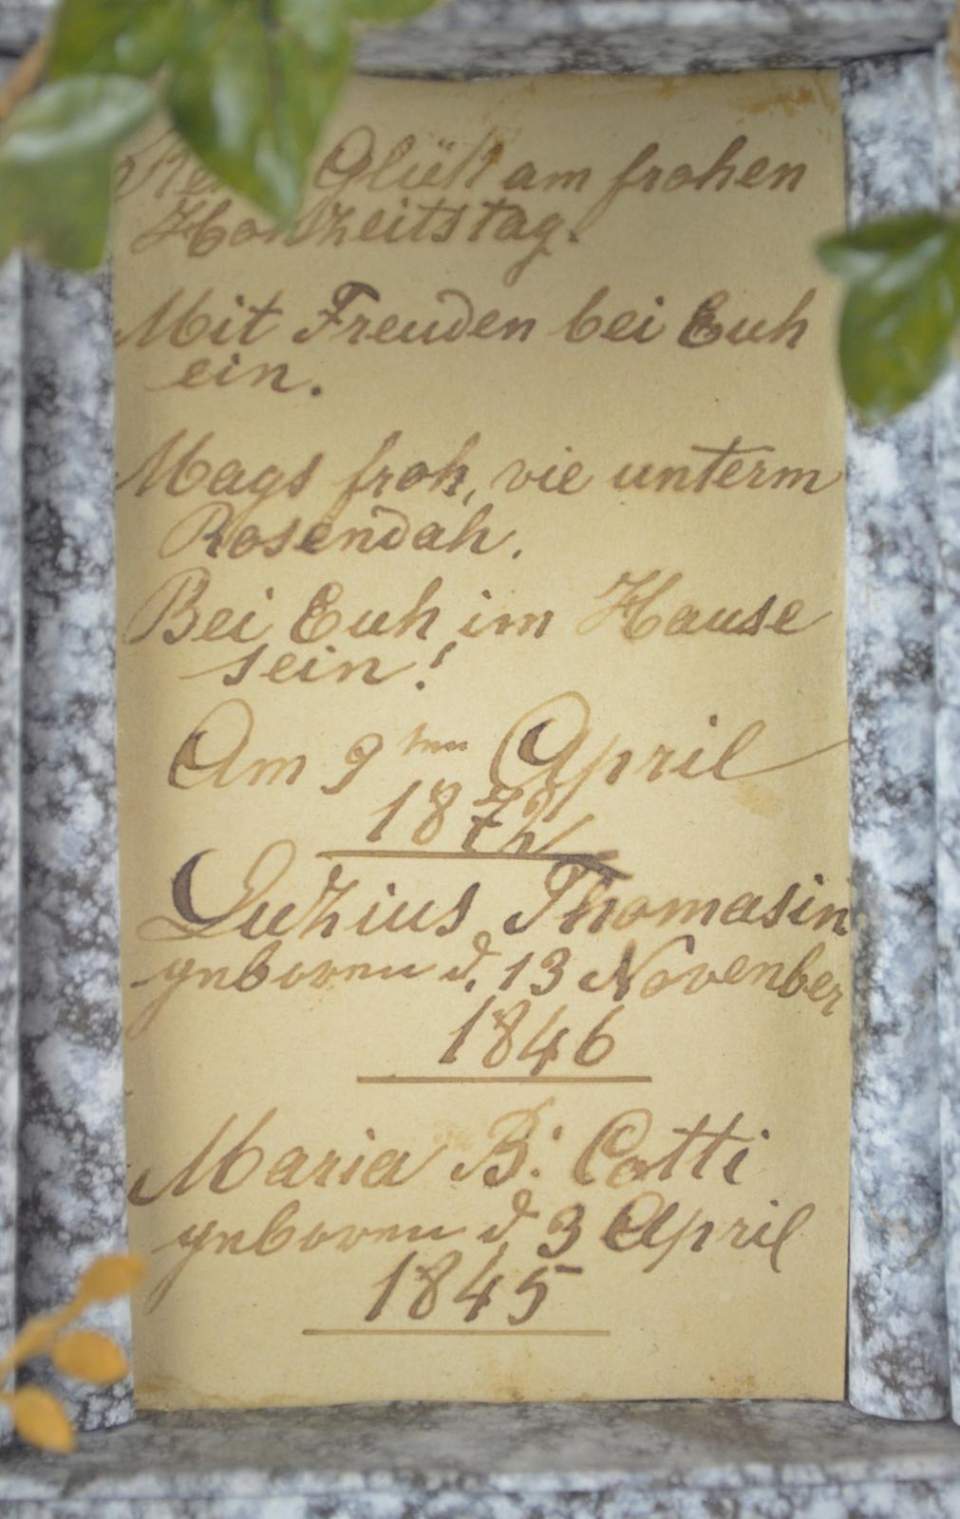 Glük am frohen
Hohzeitstag.
Mit Freuden bei Euh
ein.
Mags froh, vie unterm
Rosendah.
Bei Euh im Hause
sein!
Am 9ten April
1872
Luzius Thomasin
geboren d. 13 Novenber
1846
Maria B: Catti
geboren d. 3 April
1845